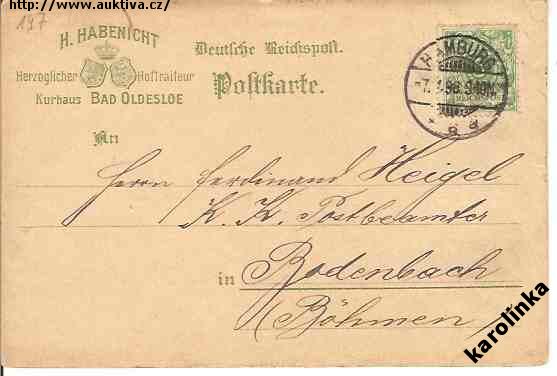 http://www.auktiva.cz/
197
H. HABENICHT
Herzoglicher Hoftraiteur
Kurhaus BAD OLDESLOE
Deutsche Reichspost.
Postkarte.
HAMBURG
An
Herrn Ferdinand Heigel
K. K. Postbeamter
in Bodenbach
(Böhmen)
karolinka